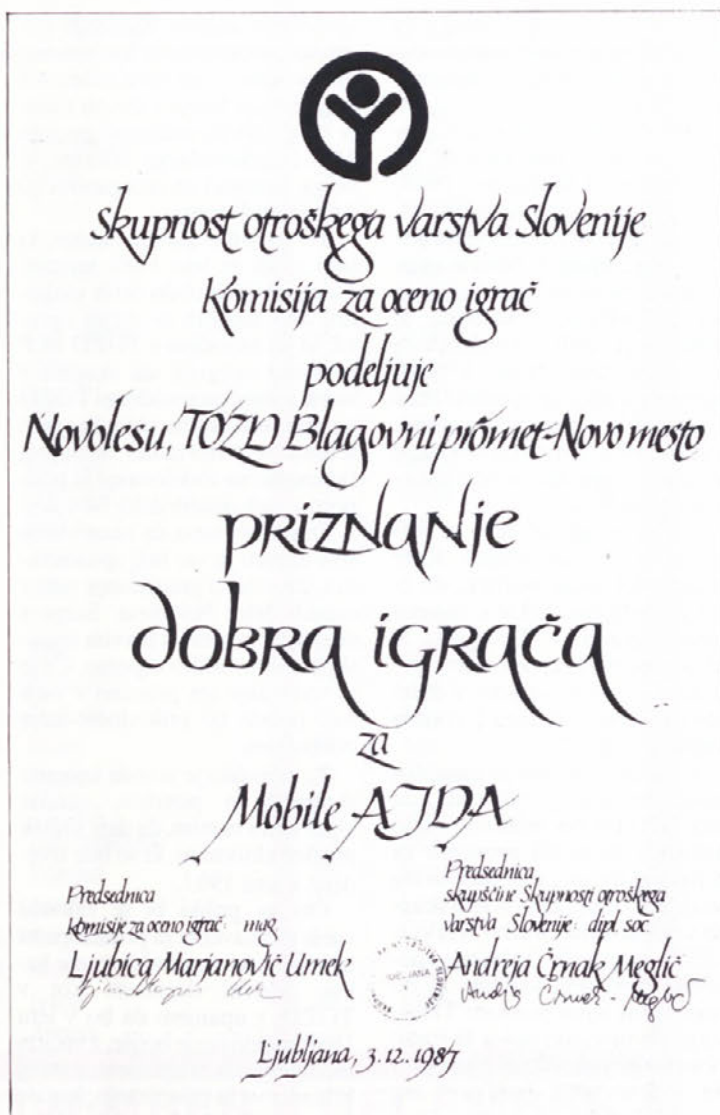 skupnost otroškega varstva Slovenije
Komisija za oceno igrač
podeljuje
Novolesu, TOZD Blagovni promet-Novo mesto
priznanje
dobra igrača
za
Mobile AJDA
Predsednica
komisije za oceno igrač: mag
Ljubica Marjanovič Umek
Predsednica
skupščine Skupnosti otroškega
varstva Slovenije: dipl. soc.
Andreja Črnak Meglič
LJUBLJANA
Ljubljana, 3.12.1987